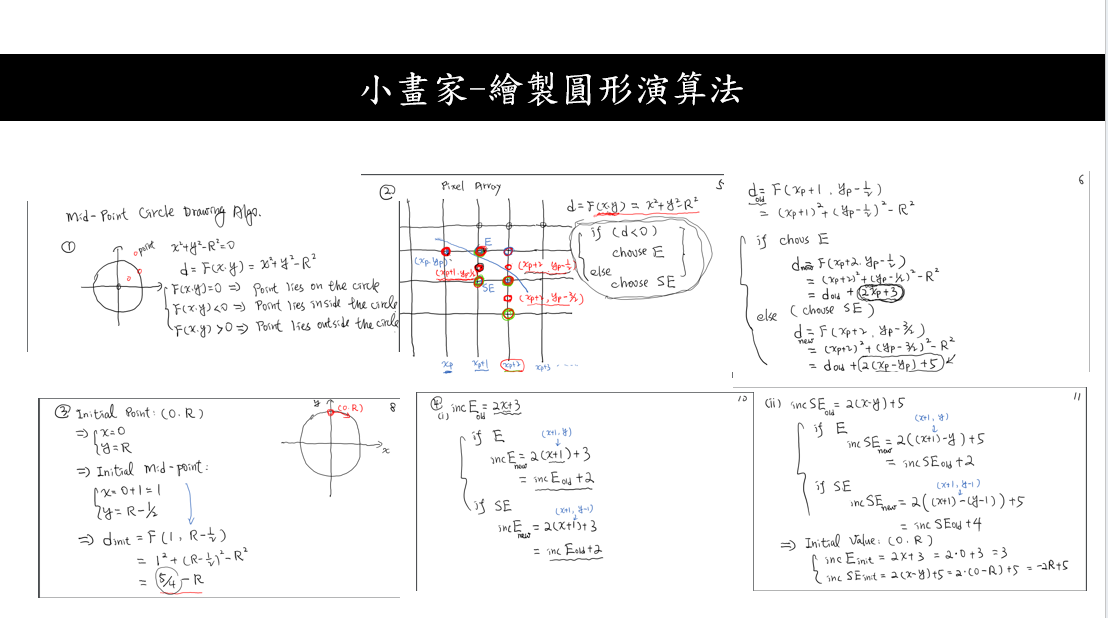 小畫家-繪製圓形演算法
Mid-Point Circle Drawing Algo.
①
point
x²+y²-R²=0
d = F(x.y) = x²+y²-R²
F(x.y)=0 => Point lies on the circle
F(x.y)<0 => Point lies inside the circle
F(x.y)>0 => Point lies outside the circle
②
Pixel Array
5
d=F(x.y) = x²+y²-R²
if (d<0)
choose E
else
choose SE
E
(xp.yp)
(xp+1.yp-½)
(xp+2 yp-½)
SE
(xp+2, yp-3/2)
xp xp+1 xp+2 xp+3 ....
6
d old = F(xp+1, yp-½)
= (xp+1)²+(yp-½)²-R²
if chous E
d new = F(xp+2. yp-½)
= (xp+2)²+(yp-½)²-R²
= dold + 2xp+3
else (choose SE)
d new = F(xp+2, yp-3/2)
= (xp+2)²+(yp-3/2)²-R²
= dold + 2(xp-yp)+5
③ Initial Point: (0.R)
8
=> x=0
y=R
=> Initial Mid-point:
x=0+1=1
y=R-½
=> dinit = F(1, R-½)
= 1²+(R-½)²-R²
= 5/4-R
y
(0.R)
x
④
10
(i) incE old = 2x+3
if E
(x+1,y)
incE new = 2(x+1)+3
= incEold+2
if SE
(x+1,y-1)
incE new = 2(x+1)+3
= incEold+2
11
(ii) incSE old = 2(x-y)+5
if E
(x+1,y)
incSE new = 2((x+1)-y)+5
= incSEold+2
if SE
(x+1,y-1)
incSE new = 2((x+1)-(y-1))+5
= incSEold+4
=> Initial Value: (0.R)
incEinit = 2x+3 = 2·0+3 =3
incSEinit = 2(x-y)+5=2·(0-R)+5 = -2R+5